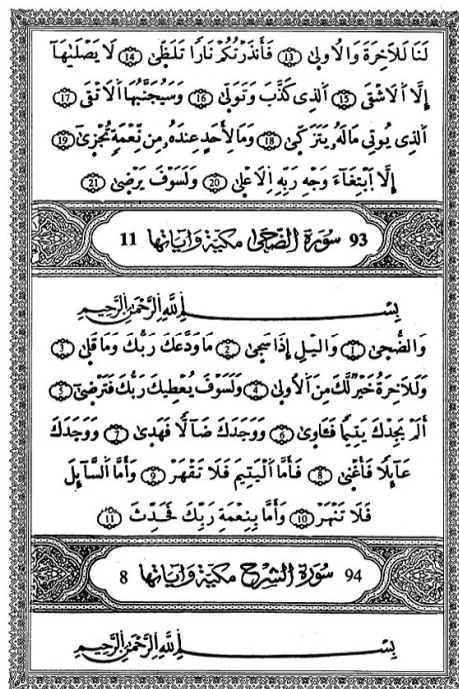 لَنَا لَلَاخِرَةَ وَالُاولىٰ 13 فَأَنذَرْتُكُمْ نَارًا تَلَظّىٰ 14 لَا يَصْلَيٰهَا
إِلَّا اَلَاشْقَى 15 اَلذِى كَذَّبَ وَتَوَلىٰ 16 وَسَيُجَنَّبُهَا اَلَاتْقَى 17
اَلذِى يُوتِى مَالَهُۥ يَتَزَكىٰ 18 وَمَا لِأَحَدٍ عِندَهُۥ مِن نِّعْمَةٍ تُجْزىٰ 19
إِلَّا اَبْتِغَآءَ وَجْهِ رَبِّهِ اِلَاعْلىٰ 20 وَلَسَوْفَ يَرْضىٰ 21
93 سورة الضحى مكية وآياتها 11
بِسْــــمِ اِللَّهِ اِلرَّحْمَٰنِ اِلرَّحِيمِ
وَالضُّحىٰ 1 وَاليْلِ إِذَا سَجىٰ 2 مَا وَدَّعَكَ رَبُّكَ وَمَا قَلىٰ 3
وَلَلَاخِرَةُ خَيْرٌ لَّكَ مِنَ اَلُاولىٰ 4 وَلَسَوْفَ يُعْطِيكَ رَبُّكَ فَتَرْضىٰ 5
أَلَمْ يَجِدْكَ يَتِيمًا فَـَٔاوىٰ 6 وَوَجَدَكَ ضَآلًّا فَهَدىٰ 7 وَوَجَدَكَ
عَآئِلًا فَأَغْنىٰ 8 فَأَمَّا اَلْيَتِيمَ فَلَا تَقْهَرْ 9 وَأَمَّا اَلسَّآئِلَ
فَلَا تَنْهَرْ 10 وَأَمَّا بِنِعْمَةِ رَبِّكَ فَحَدِّثْ 11
94 سورة الشرح مكية وآياتها 8
بِسْــــمِ اِللَّهِ اِلرَّحْمَٰنِ اِلرَّحِيمِ